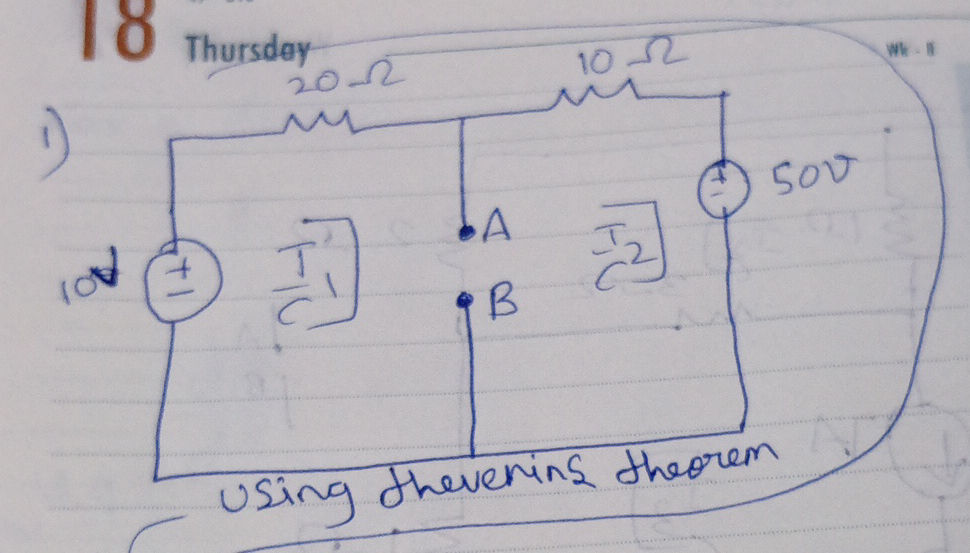 18
Thursday
Wk - 11
20 Ω
10 Ω
1)
50V
10V
+
-
+
-
A
B
I1
I2
using thevenins theorem